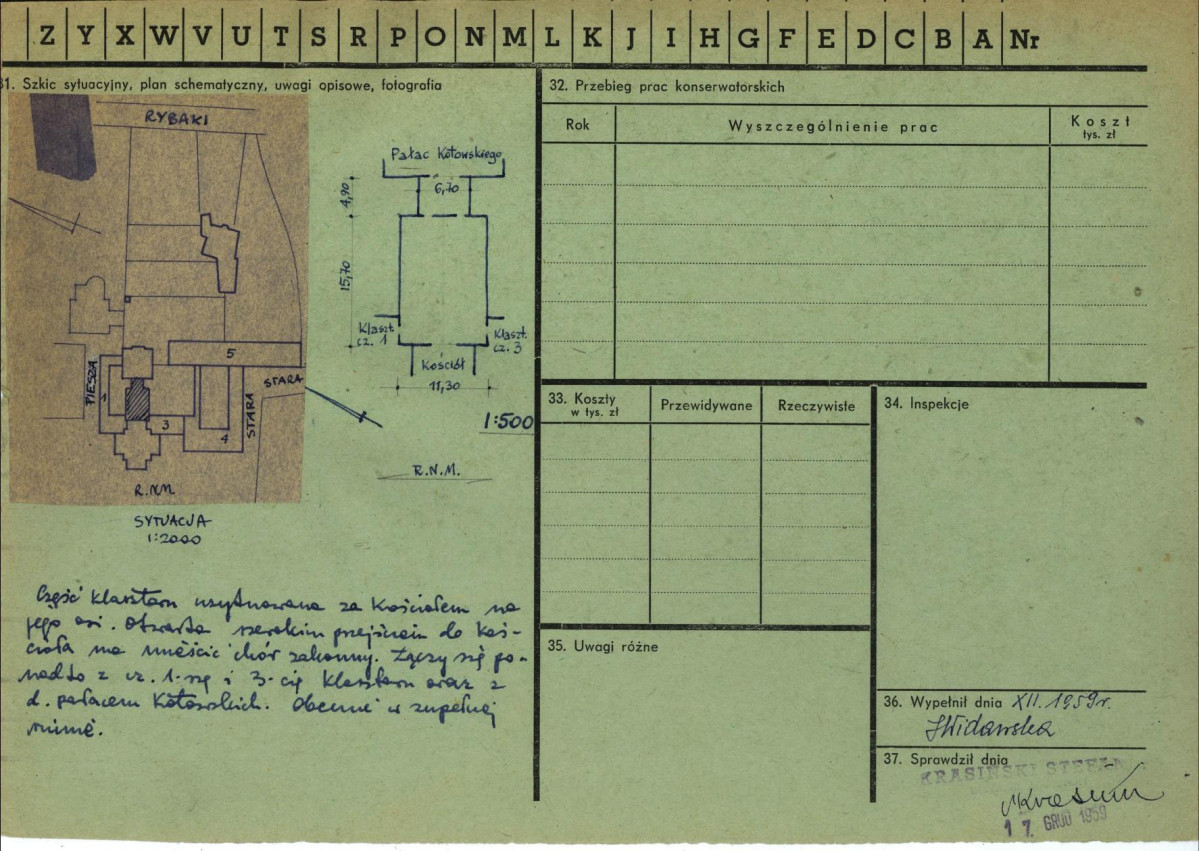 Z Y X W V U T S R P O N M L K J I H G F E D C B A Nr
31. Szkic sytuacyjny, plan schematyczny, uwagi opisowe, fotografia
RYBAKI
PIESZA
STARA
STARA
1
3
4
5
R.N.M.
SYTUACJA
1:2000
Pałac Kotowskiego
6,70
4,90
15,70
Klaszt.
cz. 1
Klaszt.
cz. 3
Kościół
11,30
1:500
R.N.M.
Część klasztoru usytuowana za kościołem na
jego osi. Otwarta szerokim przejściem do koś-
cioła ma mieścić chór zakonny. Łączy się po-
nadto z cz. 1-szą i 3-cią klasztoru oraz z
d. pałacem Kotowskich. Obecnie w zupełnej
ruinie.
32. Przebieg prac konserwatorskich
Rok
Wyszczególnienie prac
Koszt
tys. zł
33. Koszty
w tys. zł
Przewidywane
Rzeczywiste
34. Inspekcje
35. Uwagi różne
36. Wypełnił dnia XII. 1959r.
JWidawska
37. Sprawdził dnia
KRASIŃSKI STEFAN
17. GRUD 1959